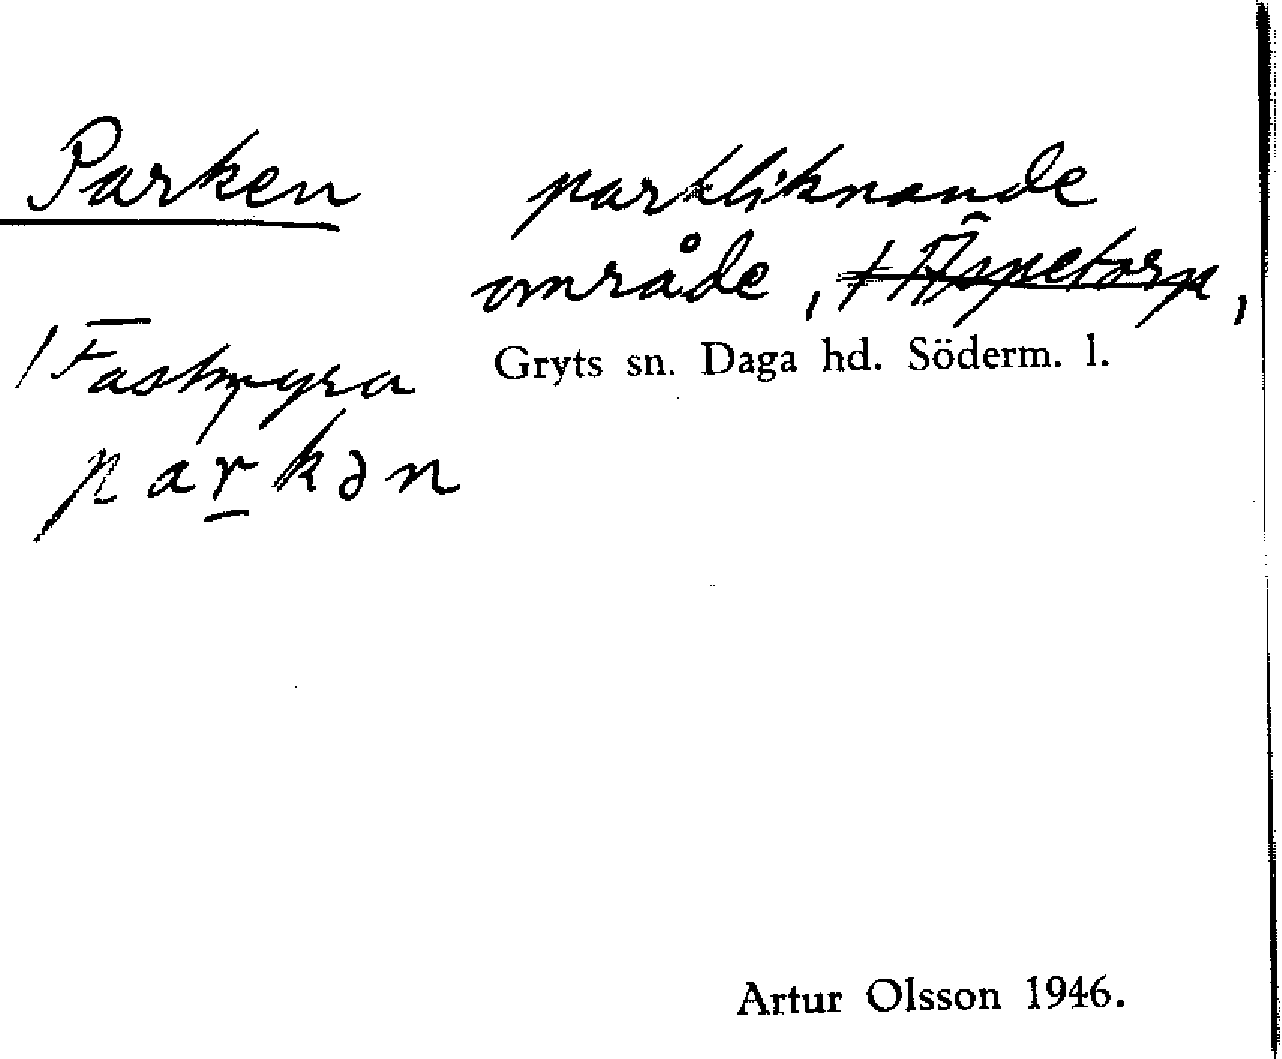 Parken
parkliknande
område, † Äspetorp,
/ Fastmyra
Gryts sn. Daga hd. Söderm. l.
parkən
Artur Olsson 1946.